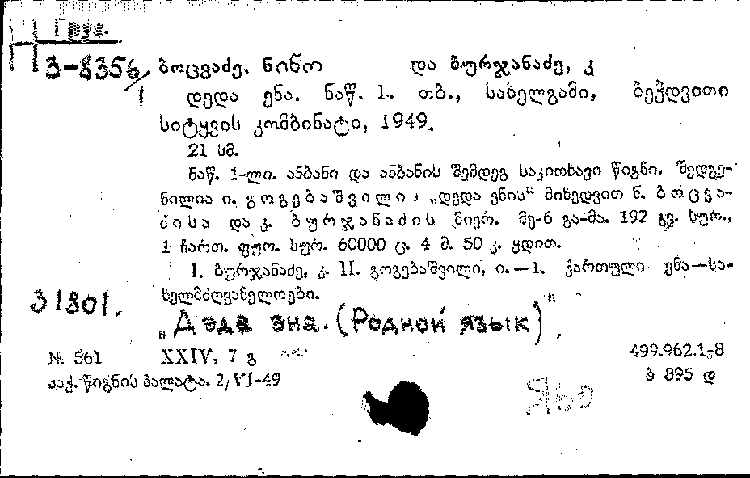 Груз.
З-8356/1
ბოცვაძე, ნინო და ბურჯანაძე, კ
დედა ენა. ნაწ. 1. თბ., სახელგამი, ბეჭდვითი
სიტყვის კომბინატი, 1949.
21 სმ.
ნაწ. 1-ლი. ანბანი და ანბანის შემდეგ საკითხავი წიგნი. შედგე-
ნილია ი. გოგებაშვილი „დედა ენის“ მიხედვით ნ. ბოცვა-
ძისა და კ. ბურჯანაძის მიერ. მე-6 გა-მა. 192 გვ. სურ.,
1 ჩართ. ფურ. სურ. 60000 ც. 4 მ. 50 კ. ყდით.
I. ბურჯანაძე, კ. II. გოგებაშვილი, ი.—1. ქართული ენა—სა-
ხელმძღვანელოები.
31801.
„Дэда эна. (Родной язык)“
№ 561 XXIV, 7 გ 499.962.1-8
საქ. წიგნის პალატა. 2/VI-49 ბ 895 დ